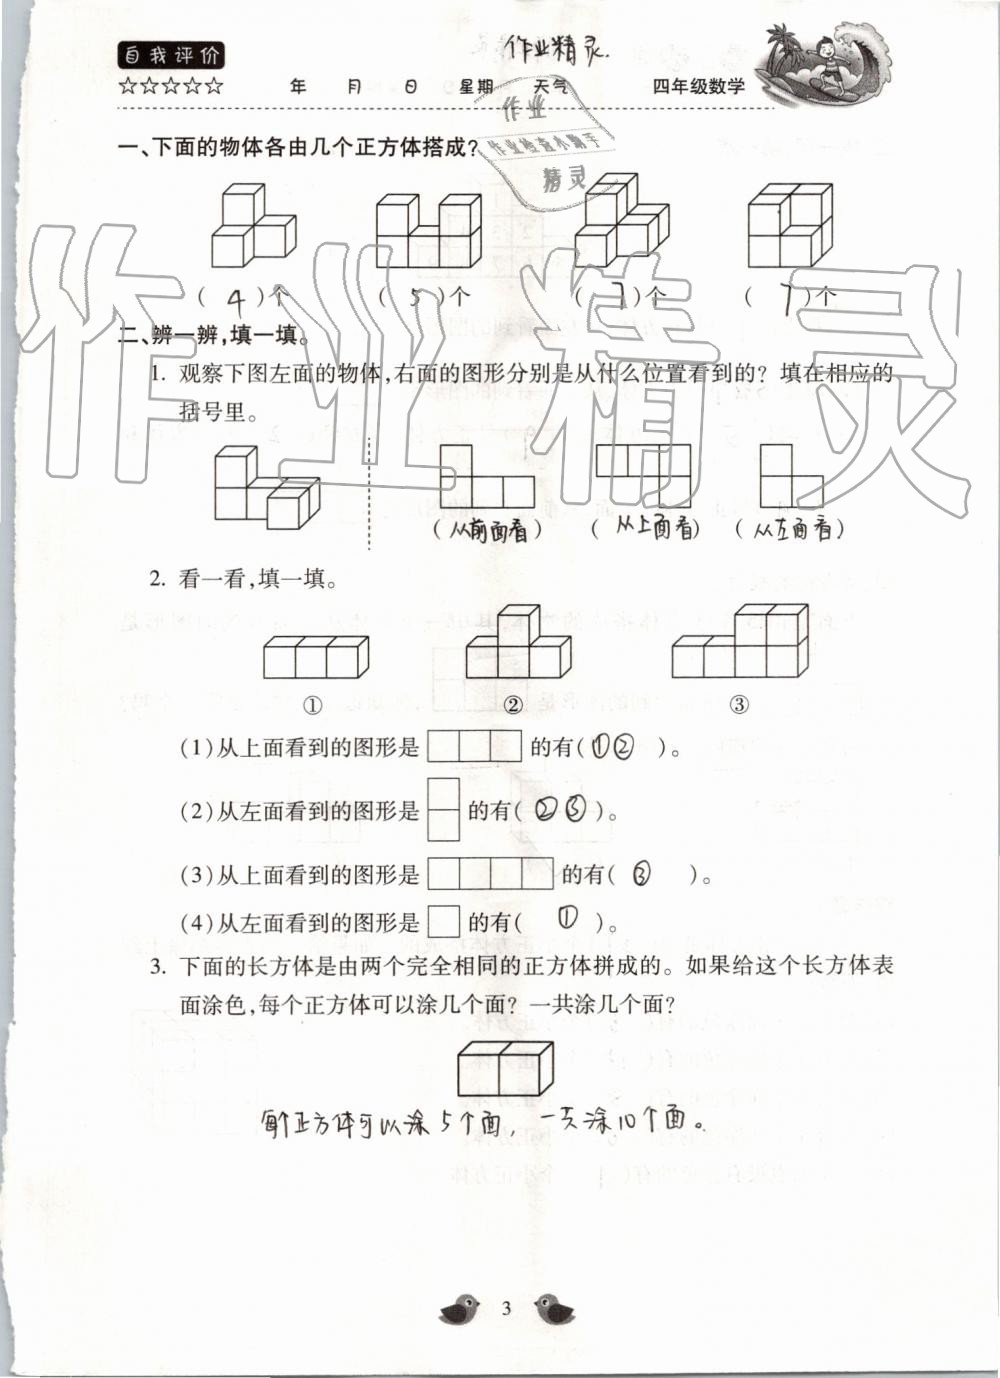 作业精灵.
自我评价
☆☆☆☆☆ 年 月 日 星期 天气 四年级数学
作业
作业检查小助手
精灵
一、下面的物体各由几个正方体搭成?
( 4 )个 ( 5 )个 ( 7 )个 ( 7 )个
作业精灵
二、辨一辨,填一填。
1. 观察下图左面的物体,右面的图形分别是从什么位置看到的? 填在相应的
括号里。
(从前面看) (从上面看) (从左面看)
2. 看一看,填一填。
① ② ③
(1)从上面看到的图形是 的有(①② )。
(2)从左面看到的图形是 的有( ②③ )。
(3)从上面看到的图形是 的有( ③ )。
(4)从左面看到的图形是 的有( ① )。
3. 下面的长方体是由两个完全相同的正方体拼成的。如果给这个长方体表
面涂色,每个正方体可以涂几个面? 一共涂几个面?
每个正方体可以涂5个面,一共涂10个面。
3